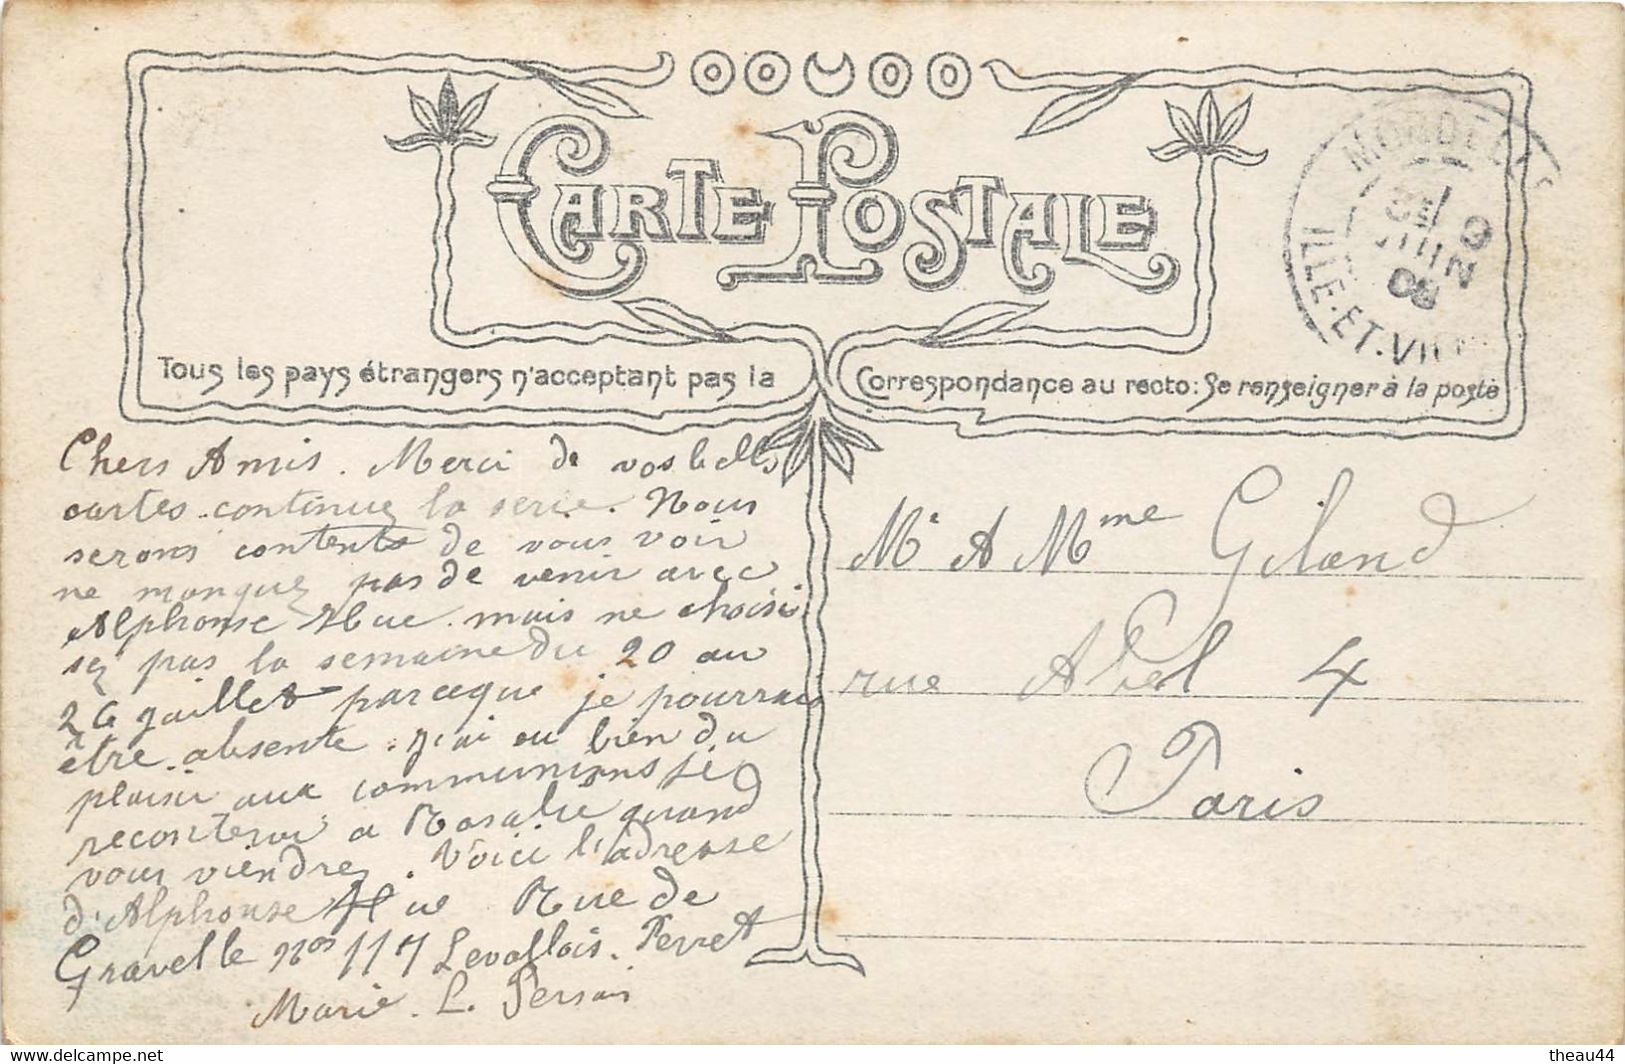 CARTE POSTALE
Tous les pays étrangers n'acceptant pas la Correspondance au recto: Se renseigner à la poste
MORDELLE
9
JUIN
08
ILLE-ET-VIL
Chers Amis. Merci de vos belles
cartes. continuez la serie. Nous
serons contents de vous voir
ne manquez pas de venir avec
Alphonse Hue. mais ne choisi
sez pas la semaine du 20 au
26 juillet parceque je pourrais
être absente. j'ai eu bien du
plaisir aux communions je
reconterai a Rosalie quand
vous viendrez. Voici l'adresse
d'Alphonse Hue Rue de
Gravelle Nos 117 Levallois. Perret
Marie. L.
Mr A Mme Giland
rue Abel 4
Paris
theau44